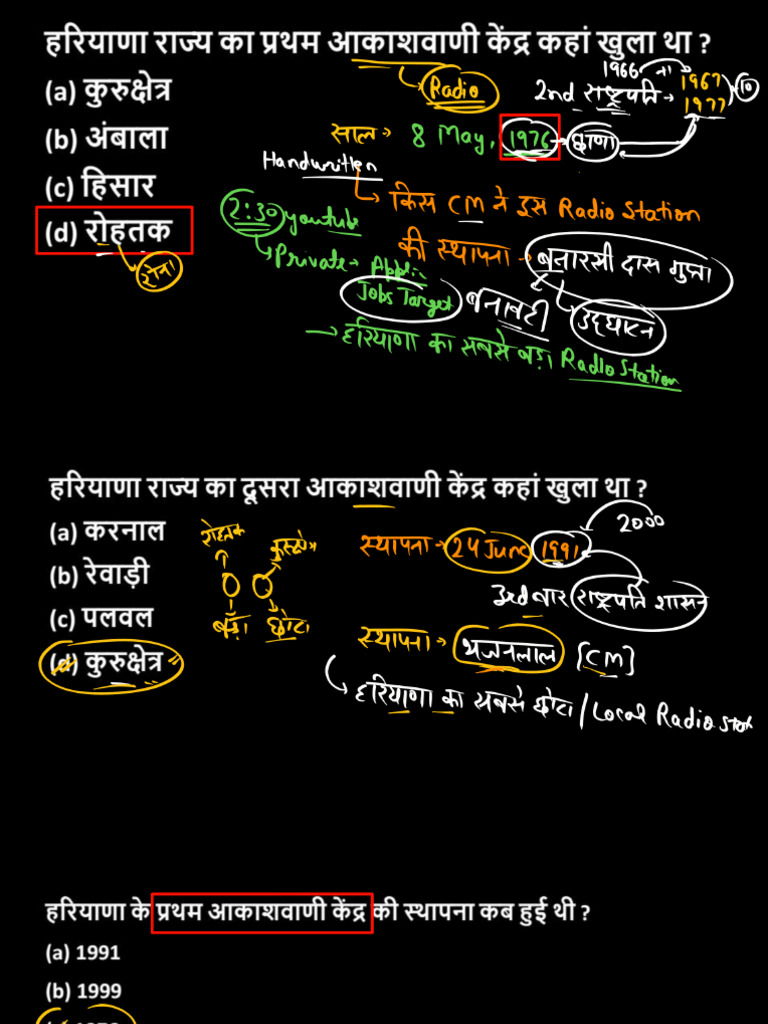 हरियाणा राज्य का प्रथम आकाशवाणी केंद्र कहां खुला था ?
(a) कुरुक्षेत्र
(b) अंबाला
(c) हिसार
(d) रोहतक
Radio
1966
2nd राष्ट्रपति → 1967
1977
10
साल → 8 May, 1976
Handwritten
किस CM ने इस Radio Station
की स्थापना → बनारसी दास गुप्ता
2:30 youtube
Private →
Jobs Target
बनावटी
उद्घाटन
→ हरियाणा का सबसे बड़ा Radio Station
हरियाणा राज्य का दूसरा आकाशवाणी केंद्र कहां खुला था ?
(a) करनाल
(b) रेवाड़ी
(c) पलवल
(d) कुरुक्षेत्र
रोहतक
बड़ा छोटा
2000
स्थापना → 24 June 1991
3rd बार राष्ट्रपति शासन
स्थापना → भजनलाल [CM]
हरियाणा का सबसे छोटा / Local Radio
हरियाणा के प्रथम आकाशवाणी केंद्र की स्थापना कब हुई थी ?
(a) 1991
(b) 1999